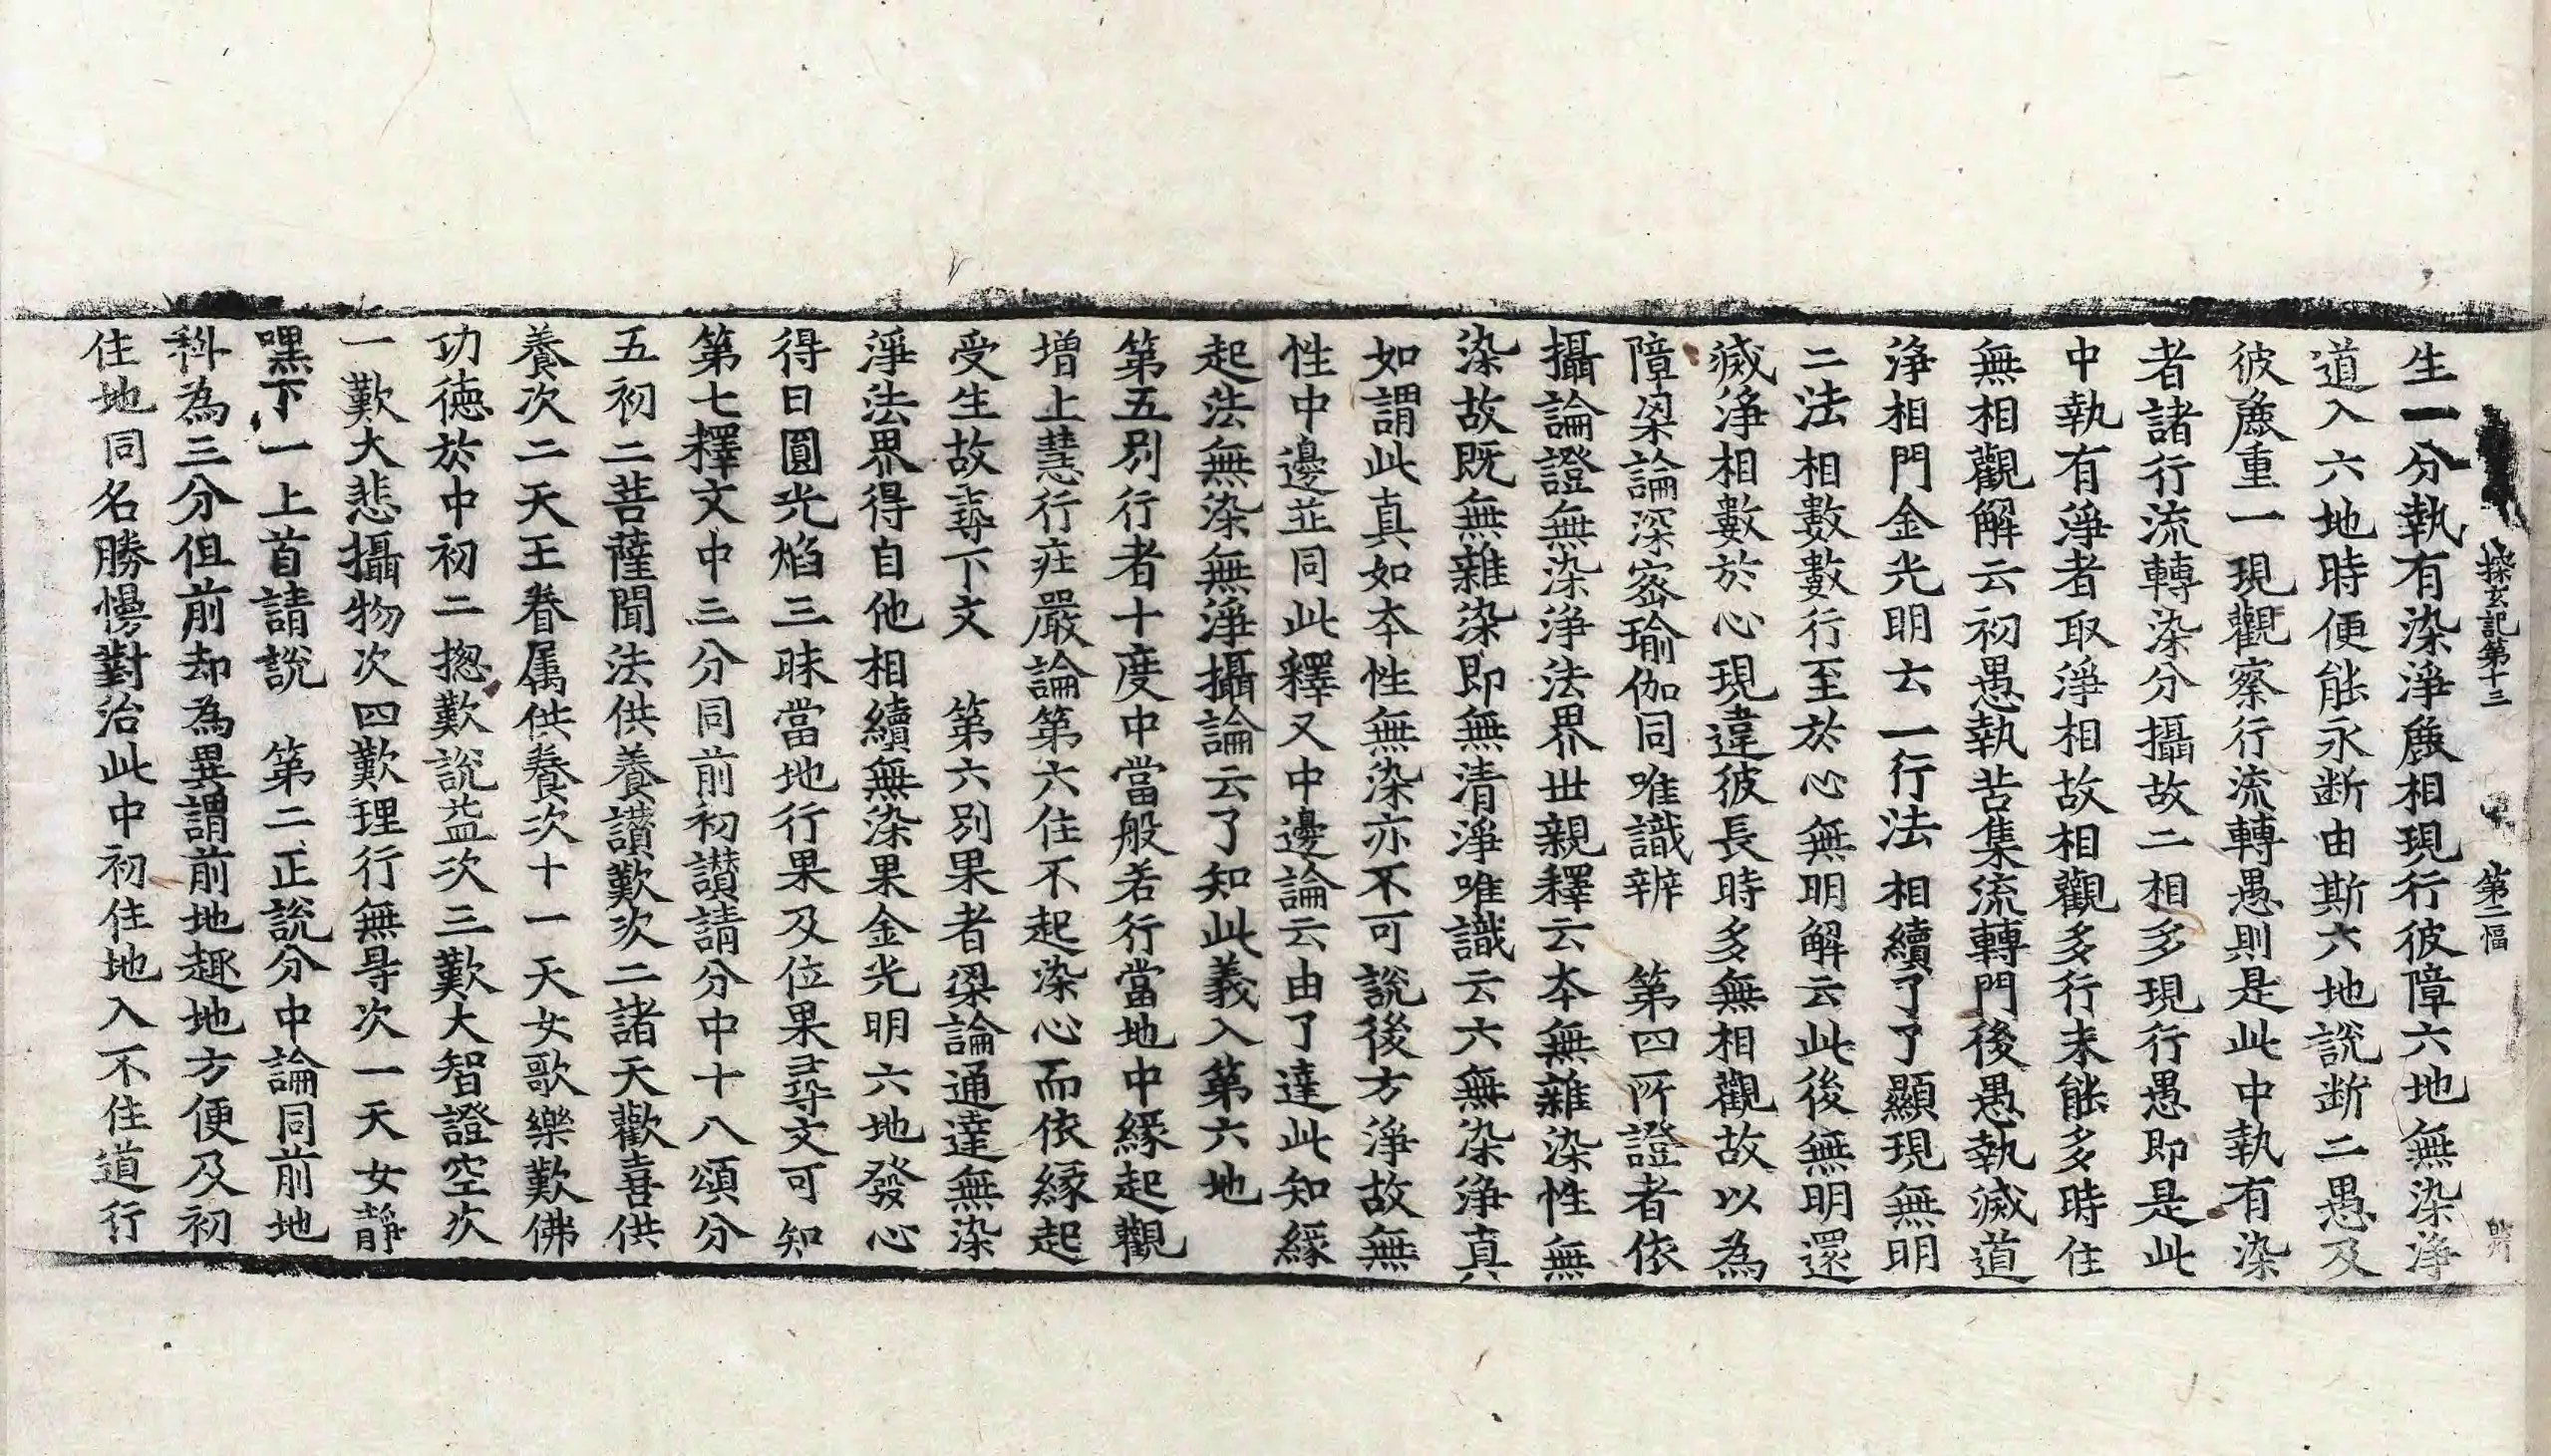 探玄記第十三 第二幅
生一分執有染淨麁相現行彼障六地無染淨
道入六地時便能永断由斯六地說断二愚及
彼麁重一現觀察行流轉愚則是此中執有染
者諸行流轉染分攝故二相多現行愚即是此
中執有淨者取淨相故相觀多行未能多時住
無相觀解云初愚執苦集流轉門後愚執滅道
淨相門金光明云一行法相續了了顯現無明
二法相數數行至於心無明解云此後無明還
滅淨相數於心現違彼長時多無相觀故以為
障梁論深密瑜伽同唯識辨 第四所證者依
攝論證無染淨法界世親釋云本無雜染性無
染故既無雜染即無清淨唯識云六無染淨真
如謂此真如本性無染亦不可說後方淨故無
性中邊並同此釋又中邊論云由了達此知緣
起法無染無淨攝論云了知此義入第六地
第五別行者十度中當般若行當地中緣起觀
增上慧行莊嚴論第六住不起染心而依緣起
受生故尋下文 第六別果者梁論通達無染
淨法界得自他相續無染果金光明六地發心
得日圓光焰三昧當地行果及位果尋文可知
第七釋文中三分同前初讃請分中十八頌分
五初二菩薩聞法供養讃歎次二諸天歡喜供
養次二天王眷属供養次十一天女歌樂歎佛
功徳於中初二揔歎說益次三歎大智證空次
一歎大悲攝物次四歎理行無㝵次一天女靜
嘿下一上首請說 第二正說分中論同前地
科為三分但前却為異謂前地趣地方便及初
住地同名勝慢對治此中初住地入不住道行